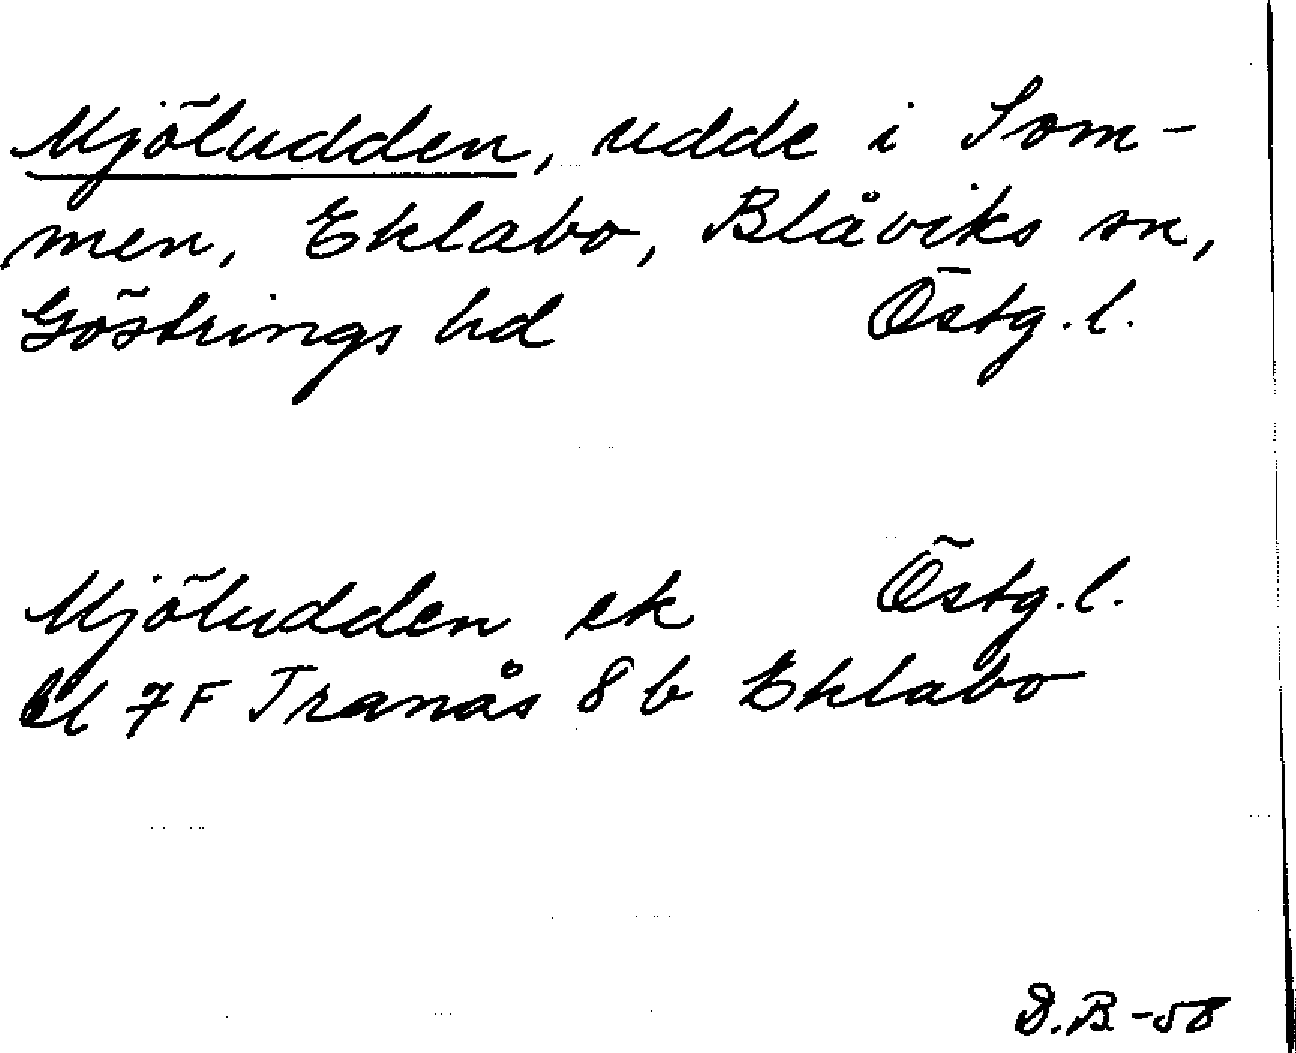 Mjöludden, udde i Som-
men, Eklabo, Blåviks sn,
Göstrings hd Östg.l.
Mjöludden ek Östg.l.
bl 7F Tranås 8 b Eklabo
D.B -58